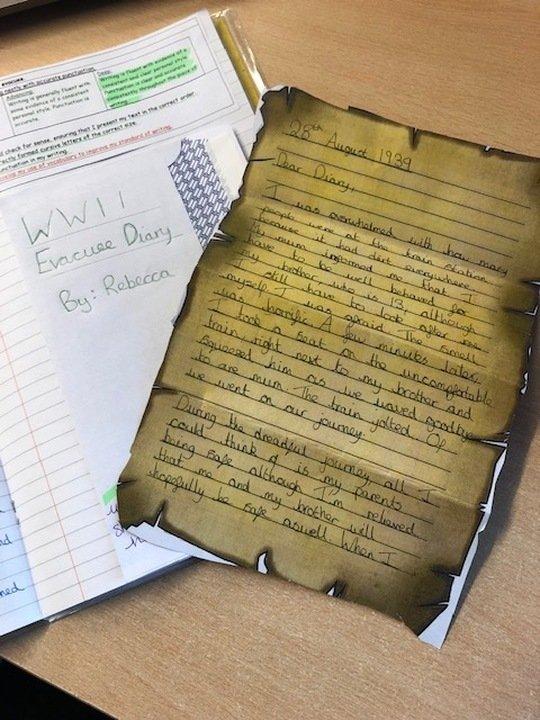 evacuee
neatly with accurate punctuation.
Advancing:
Writing is generally fluent with
some evidence of a consistent
personal style. Punctuation is
accurate.
Deep:
Writing is fluent with evidence of a
consistent and clear personal style.
Punctuation is clear and accurate
consistently throughout the piece of
writing.
check for sense, ensuring that I present my text in the correct order.
formed cursive letters of the correct size.
punctuation in my writing.
my use of vocabulary to improve my standard of writing.
WWII
Evacuee Diary
By: Rebecca
28th August 1939
Dear Diary,
I was overwhelmed with how many
people were at the train station
because it had dirt everywhere.
My mum informed me that I
have to be well behaved for
my brother who is 13 although
I still have to look after
myself. I was afraid. The smell
was horrific. A few minutes later,
I took a seat on the uncomfortable
train right next to my brother and
squeezed him as we waved goodbye
to are mum. The train jolted. Of
we went on our journey.
During the dreadful journey, all I
could think of is my parents
being safe although I'm relieved
that me and my brother will
hopefully be safe aswell. When I